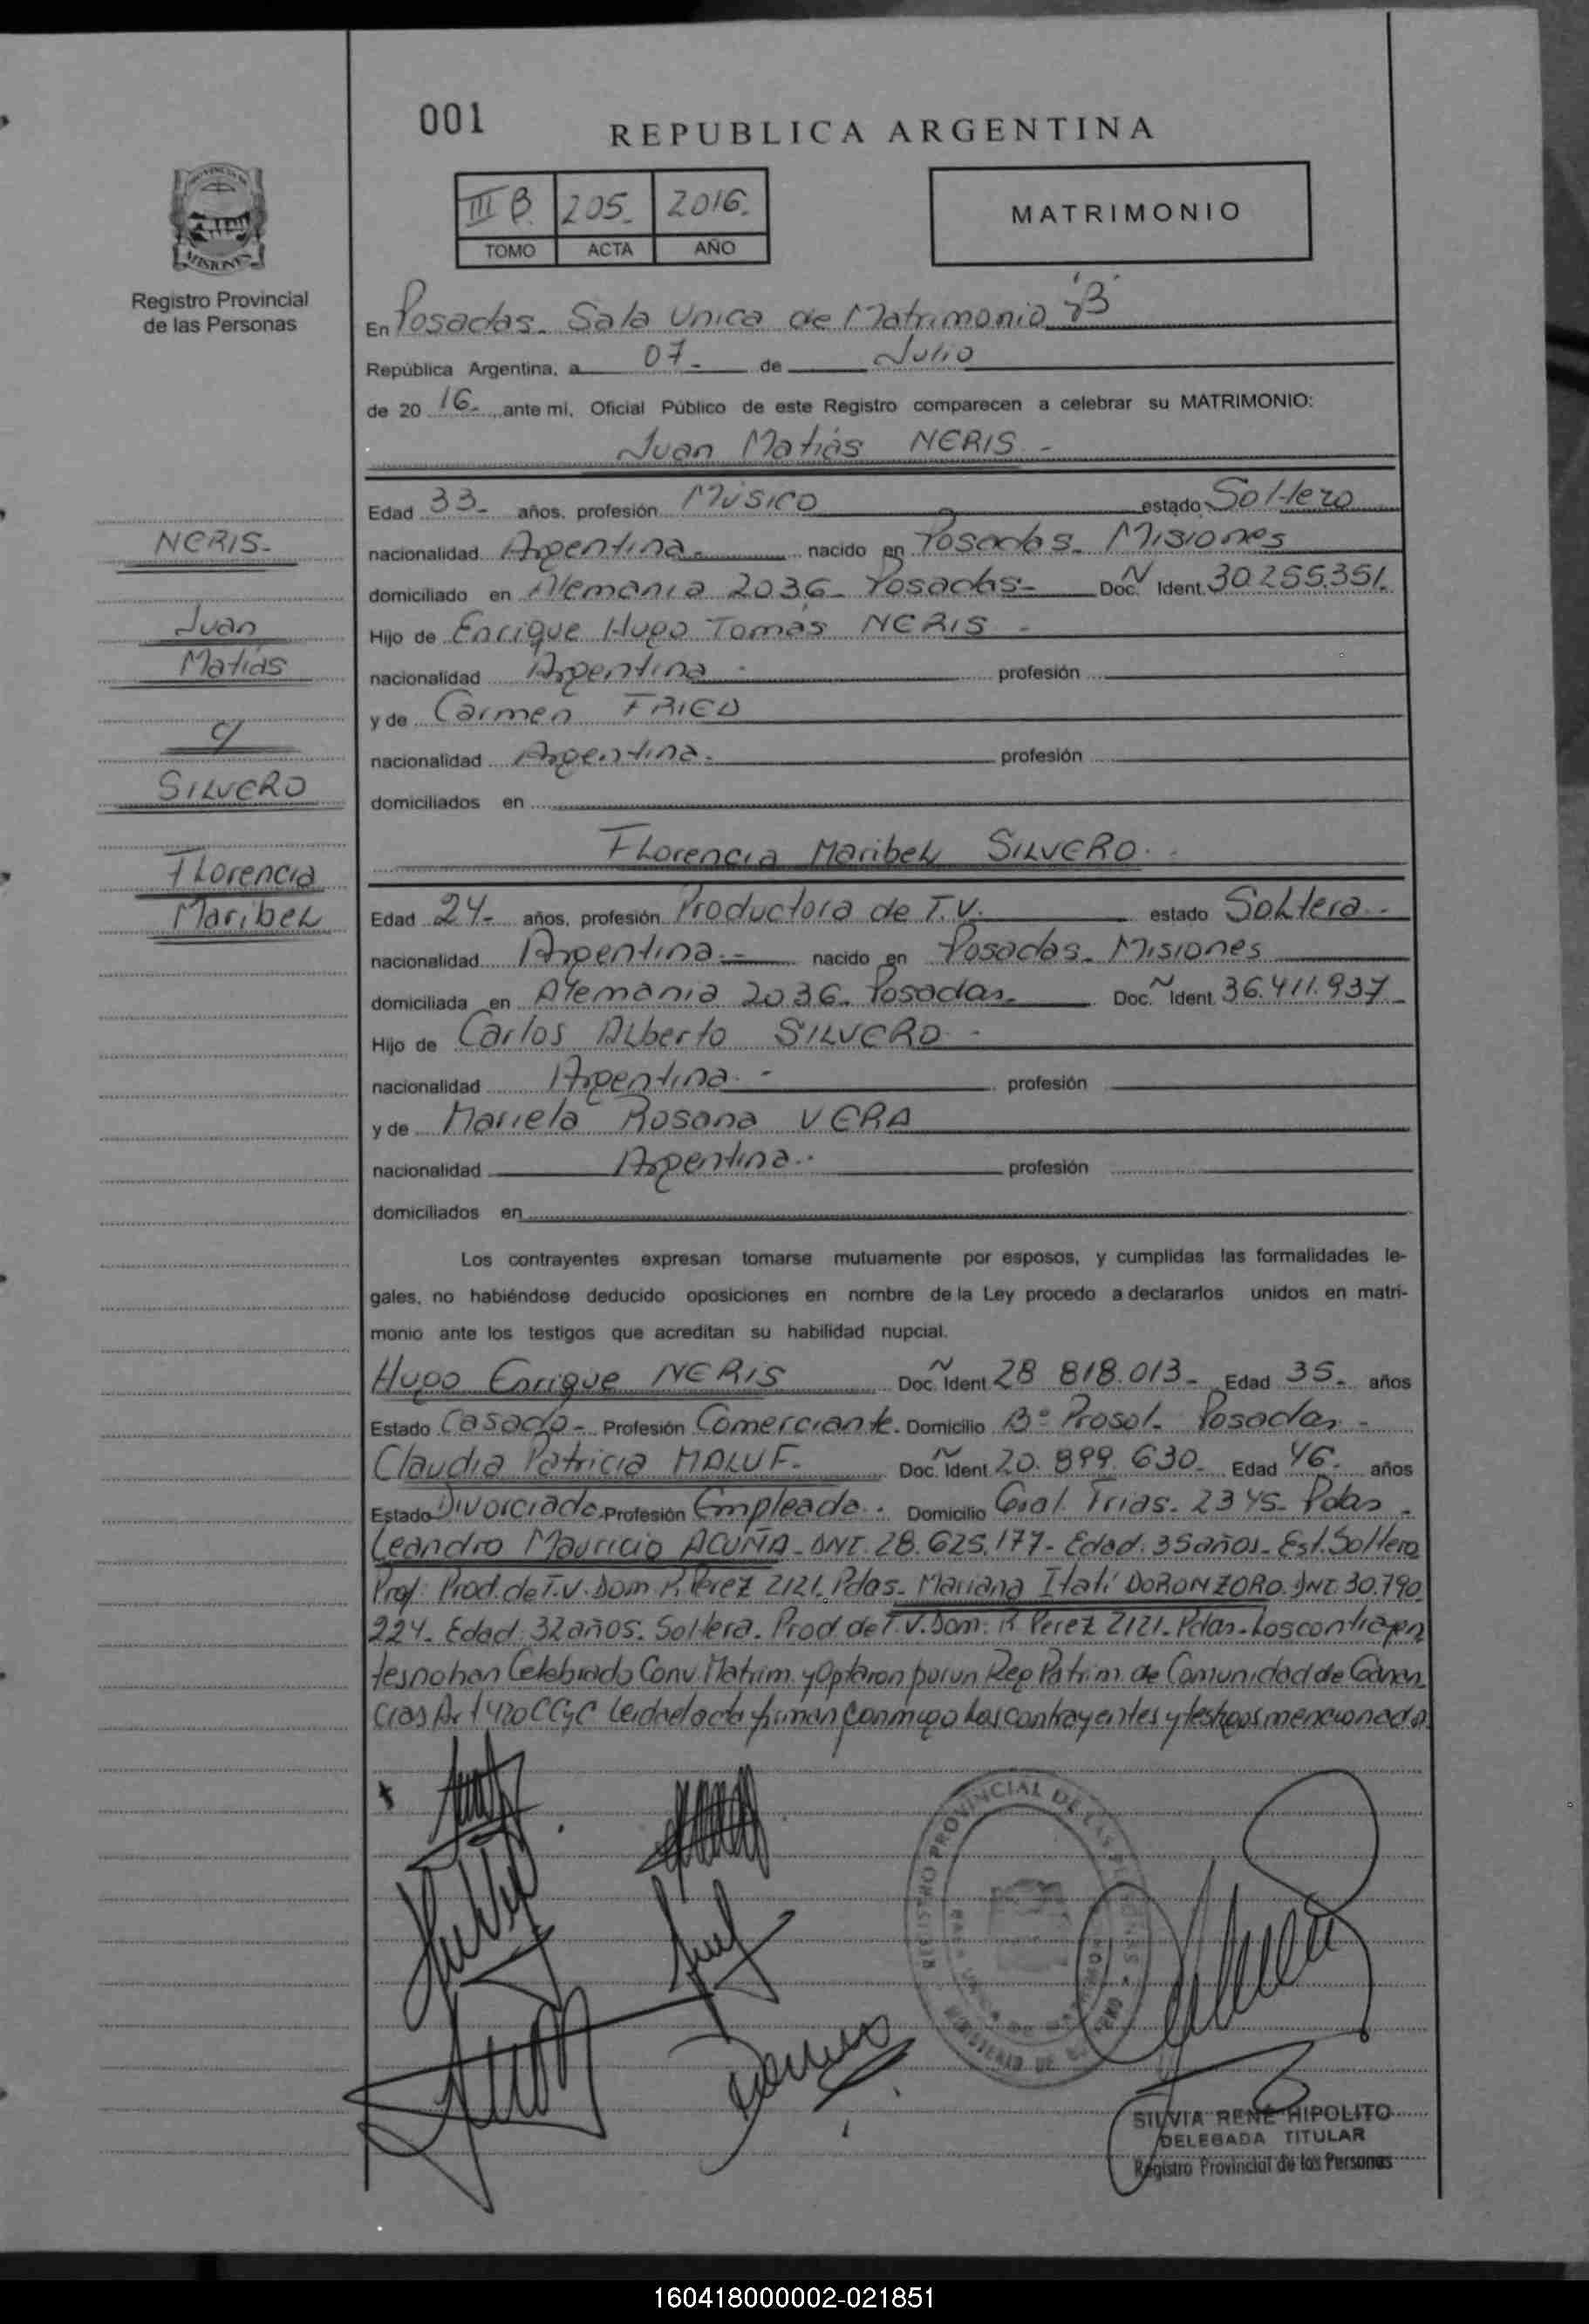 001
REPUBLICA ARGENTINA
III B. 205. 2016.
TOMO ACTA AÑO
MATRIMONIO
PROVINCIA DE
MISIONES
Registro Provincial
de las Personas
En Posadas. Sala Unica de Matrimonio "B"
República Argentina, a 07 - de Julio
de 20 16 - ante mi, Oficial Público de este Registro comparecen a celebrar su MATRIMONIO:
Juan Matias NERIS -
Edad 33 - años, profesión Músico estado Soltero
nacionalidad Argentina - nacido en Posadas - Misiones
domiciliado en Alemania 2036 - Posadas - Doc. N Ident. 30.255.351.
Hijo de Enrique Hugo Tomás NERIS -
nacionalidad Argentina - profesión
y de Carmen FRIED
nacionalidad Argentina - profesión
domiciliados en
Florencia Maribel SILVERO -
Edad 24 - años, profesión Productora de T.V. estado Soltera -
nacionalidad Argentina - nacido en Posadas - Misiones
domiciliada en Alemania 2036. Posadas - Doc. N Ident. 36.411.937 -
Hijo de Carlos Alberto SILVERO -
nacionalidad Argentina - profesión
y de Mariela Rosana VERA
nacionalidad Argentina - profesión
domiciliados en
NERIS -
Juan
Matias
c/
SILVERO
Florencia
Maribel
Los contrayentes expresan tomarse mutuamente por esposos, y cumplidas las formalidades le-
gales, no habiéndose deducido oposiciones en nombre de la Ley procedo a declararlos unidos en matri-
monio ante los testigos que acreditan su habilidad nupcial.
Hugo Enrique NERIS Doc. N Ident. 28 818.013 - Edad 35 - años
Estado Casado - Profesión Comerciante. Domicilio B° Prosol - Posadas -
Claudia Patricia MALUF - Doc. N Ident. 20. 899. 630 - Edad 46 - años
Estado Divorciada. Profesión Empleada. Domicilio Gral. Frias - 2345 - Pdas -
Leandro Mauricio ACUÑA - DNI. 28.625.177 - Edad. 35 años - Est. Soltero
Prof: Prod. de T.V. Dom. R. Perez 2121. Pdas - Mariana Itatí DORONZORO. DNI. 30.790.
224. Edad: 32 años. Soltera. Prod. de T.V. Dom: R Perez 2121 - Pdas - Los contrayen
tes no han Celebrado Conv. Matrim. y Optaron por un Reg Patrim. de Comunidad de Ganan
cias Art 420 CCyC Leida el acta firman conmigo los contrayentes y testigos mencionados.
REGISTRO PROVINCIAL DE LAS PERSONAS
MINISTERIO DE GOBIERNO
SILVIA RENE HIPOLITO
DELEGADA TITULAR
Registro Provincial de las Personas
160418000002-021851